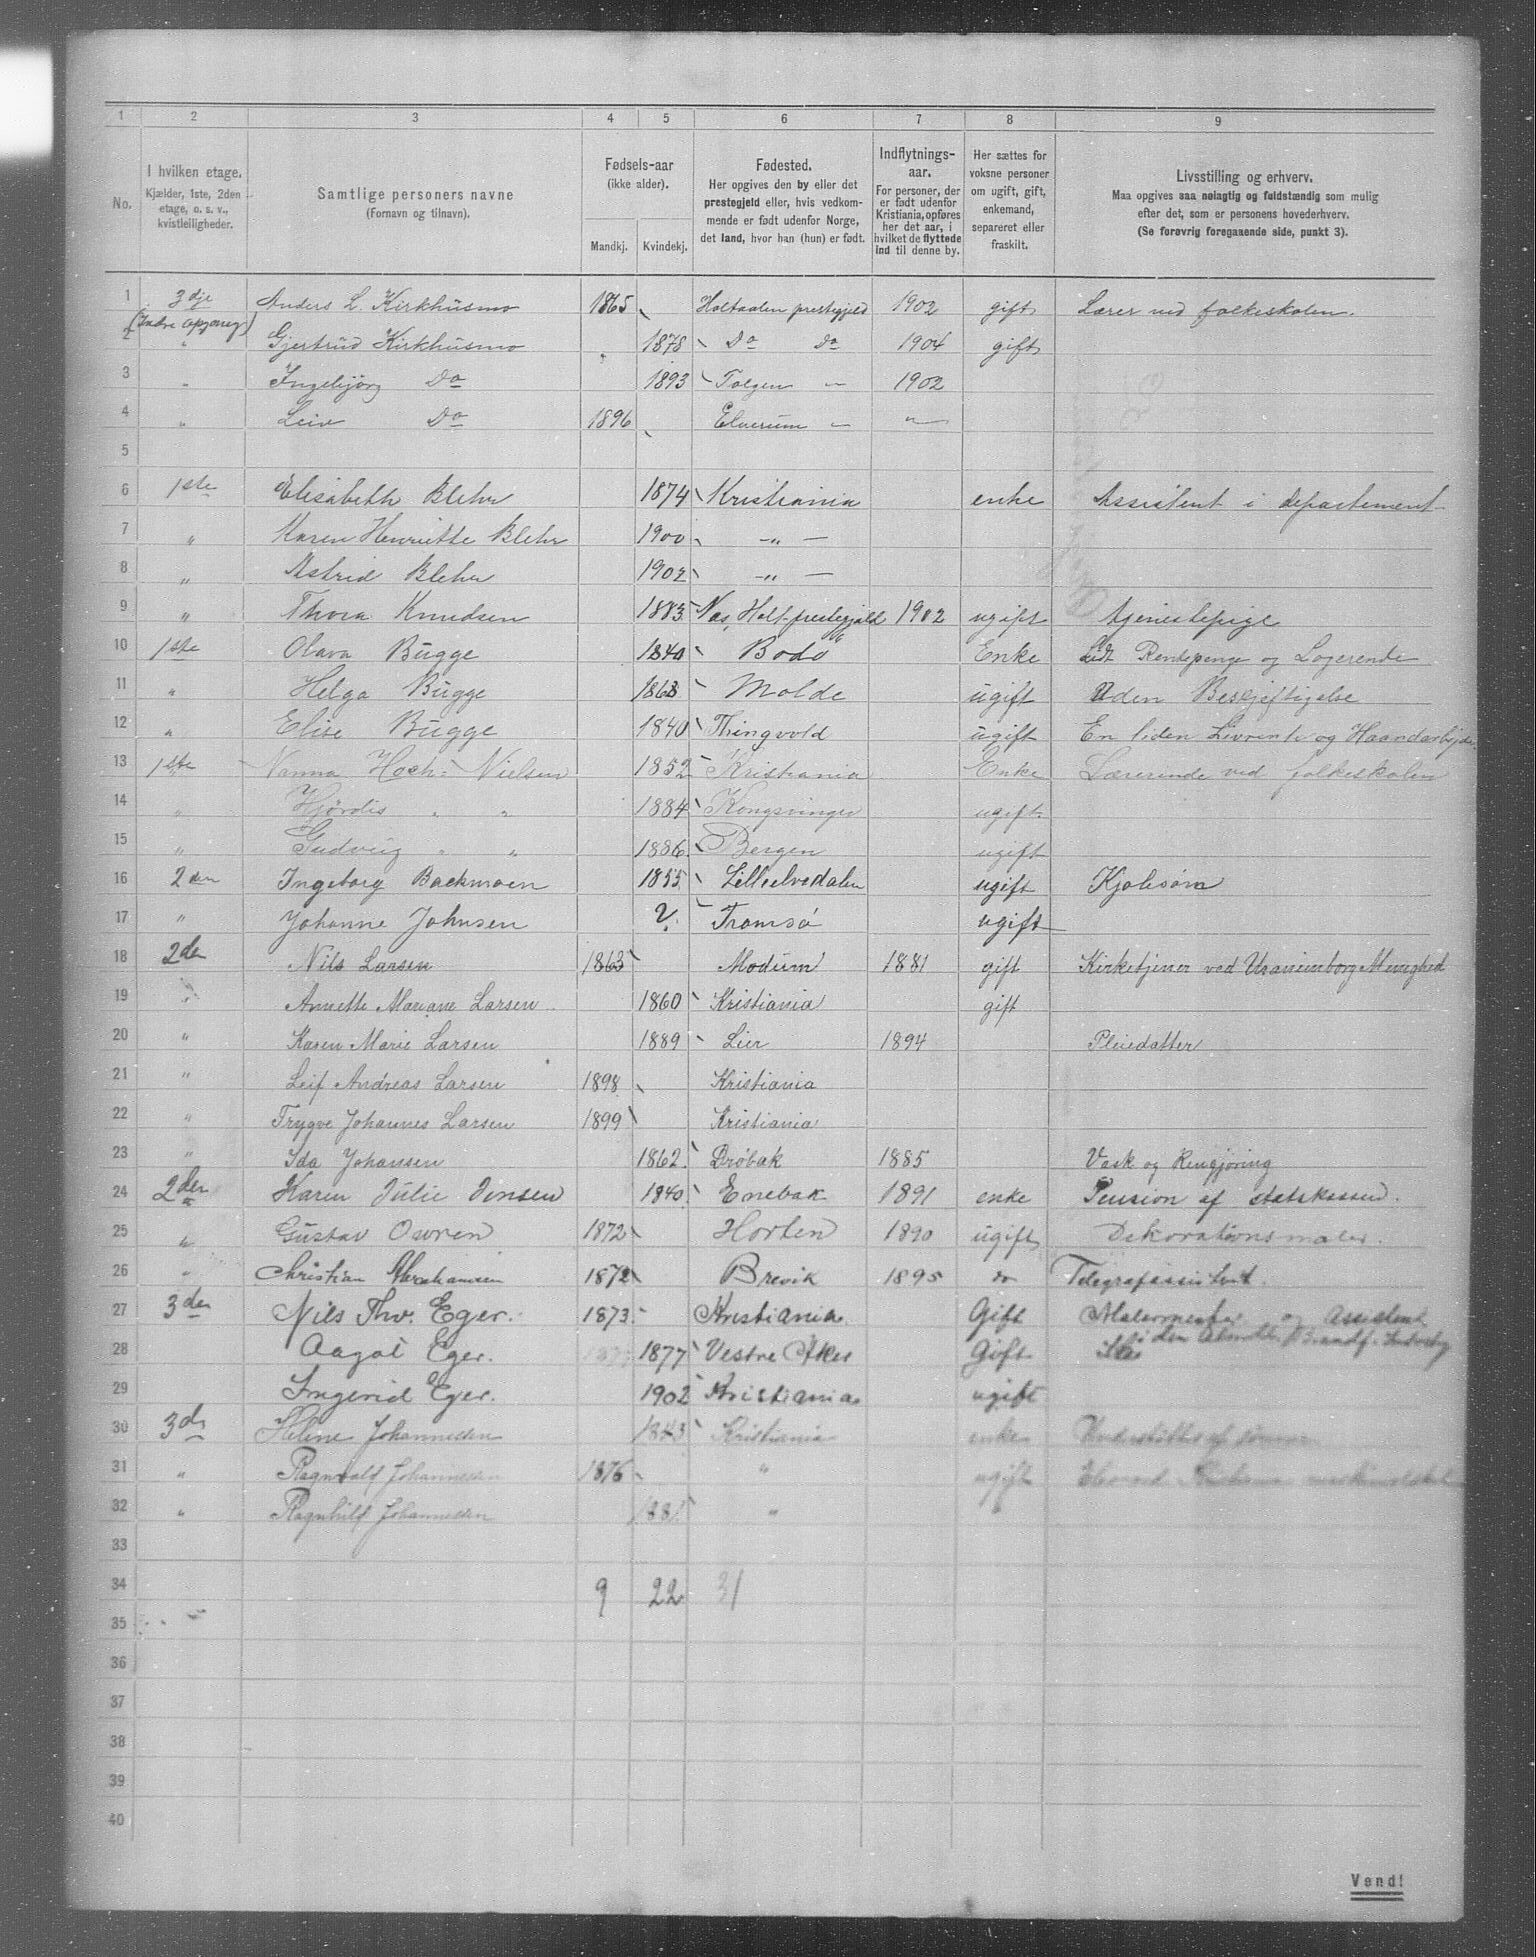 1 2 3 4 5 6 7 8 9
No.
I hvilken etage.
Kjælder, 1ste, 2den
etage, o. s. v.,
kvistleiligheder.
Samtlige personers navne
(Fornavn og tilnavn).
Fødsels-aar
(ikke alder).
Mandkj. Kvindekj.
Fødested.
Her opgives den by eller det
prestegjeld eller, hvis vedkom-
mende er født udenfor Norge,
det land, hvor han (hun) er født.
Indflytnings-
aar.
For personer, der
er født udenfor
Kristiania, opføres
her det aar, i
hvilket de flyttede
ind til denne by.
Her sættes for
voksne personer
om ugift, gift,
enkemand,
separeret eller
fraskilt.
Livsstilling og erhverv.
Maa opgives saa nøiagtig og fuldstændig som mulig
efter det, som er personens hovederhverv.
(Se forøvrig foregaaende side, punkt 3).
1 3dje Anders L. Kirkhusmo 1865 Holtaalen prestegjeld 1902 gift Lærer ved folkeskolen.
(Indre opgang)
2 " Gjertrud Kirkhusmo " 1878 Do Do 1904 gift
3 " Ingebjörg Do 1893 Tolgen — 1902
4 " Leiv Do 1896 Elverum — "
5
6 1ste Elisabeth Blehr 1874 Kristiania enke Assistent i departement
7 " Karen Henriette Blehr 1900 — " —
8 " Astrid Blehr 1902 — " —
9 " Thora Knudsen 1883 Nes, Holt prestegjeld 1902 ugift tjenestepige
10 1ste Olava Bugge 1840 Bodø Enke Lidt Rentepenge og Logerende
11 " Helga Bugge 1868 Molde ugift Uden Beskjeftigelse
12 " Elise Bugge 1840 Thingvold ugift En liden Livrente og Haandarbejde
13 1ste Nanna Hoch-Nielsen 1852 Kristiania Enke Lærerinde ved folkeskolen
14 " Hjørdis " " 1884 Kongsvinger ugift
15 " Gudveig " " 1886 Bergen ugift
16 2den Ingeborg Backmoen 1855 Lilleelvedalen ugift Kjolesøm
17 " Johanne Johnsen ? Tromsø ugift
18 2den Nils Larsen 1863 Modum 1881 gift Kirketjener ved Uranienborg Menighed
19 " Annette Mariane Larsen 1860 Kristiania gift
20 " Karen Marie Larsen 1889 Lier 1894 Pleiedatter
21 " Leif Andreas Larsen 1898 Kristiania
22 " Trygve Johannes Larsen 1899 Kristiania
23 " Ida Johansen 1862 Drøbak 1885 Vask og Rengjøring
24 2den Karen Julie Jensen 1840 Enebak 1891 enke Pension af statskassen.
25 " Gustav Owren 1872 Horten 1890 ugift Dekorationsmaler.
26 " Christian Abrahamsen 1872 Brevik 1895 do Telegrafassistent.
27 3den Nils Thv. Eger. 1873 Kristiania Gift Malermester og Assistent
i den Almdl. Brandf.
28 Aagot Eger. 1877 Vestre Aker Gift
29 Ingerid Eger. 1902 Kristiania ugift
30 3de Helene Johannesen 1843 Kristiania enke Understøttes af sønner
31 " Ragnvald Johannesen 1876 " ugift
32 " Ragnhild Johannesen 1881 " "
33
34 9 22 31
35
36
37
38
39
40
Vend!